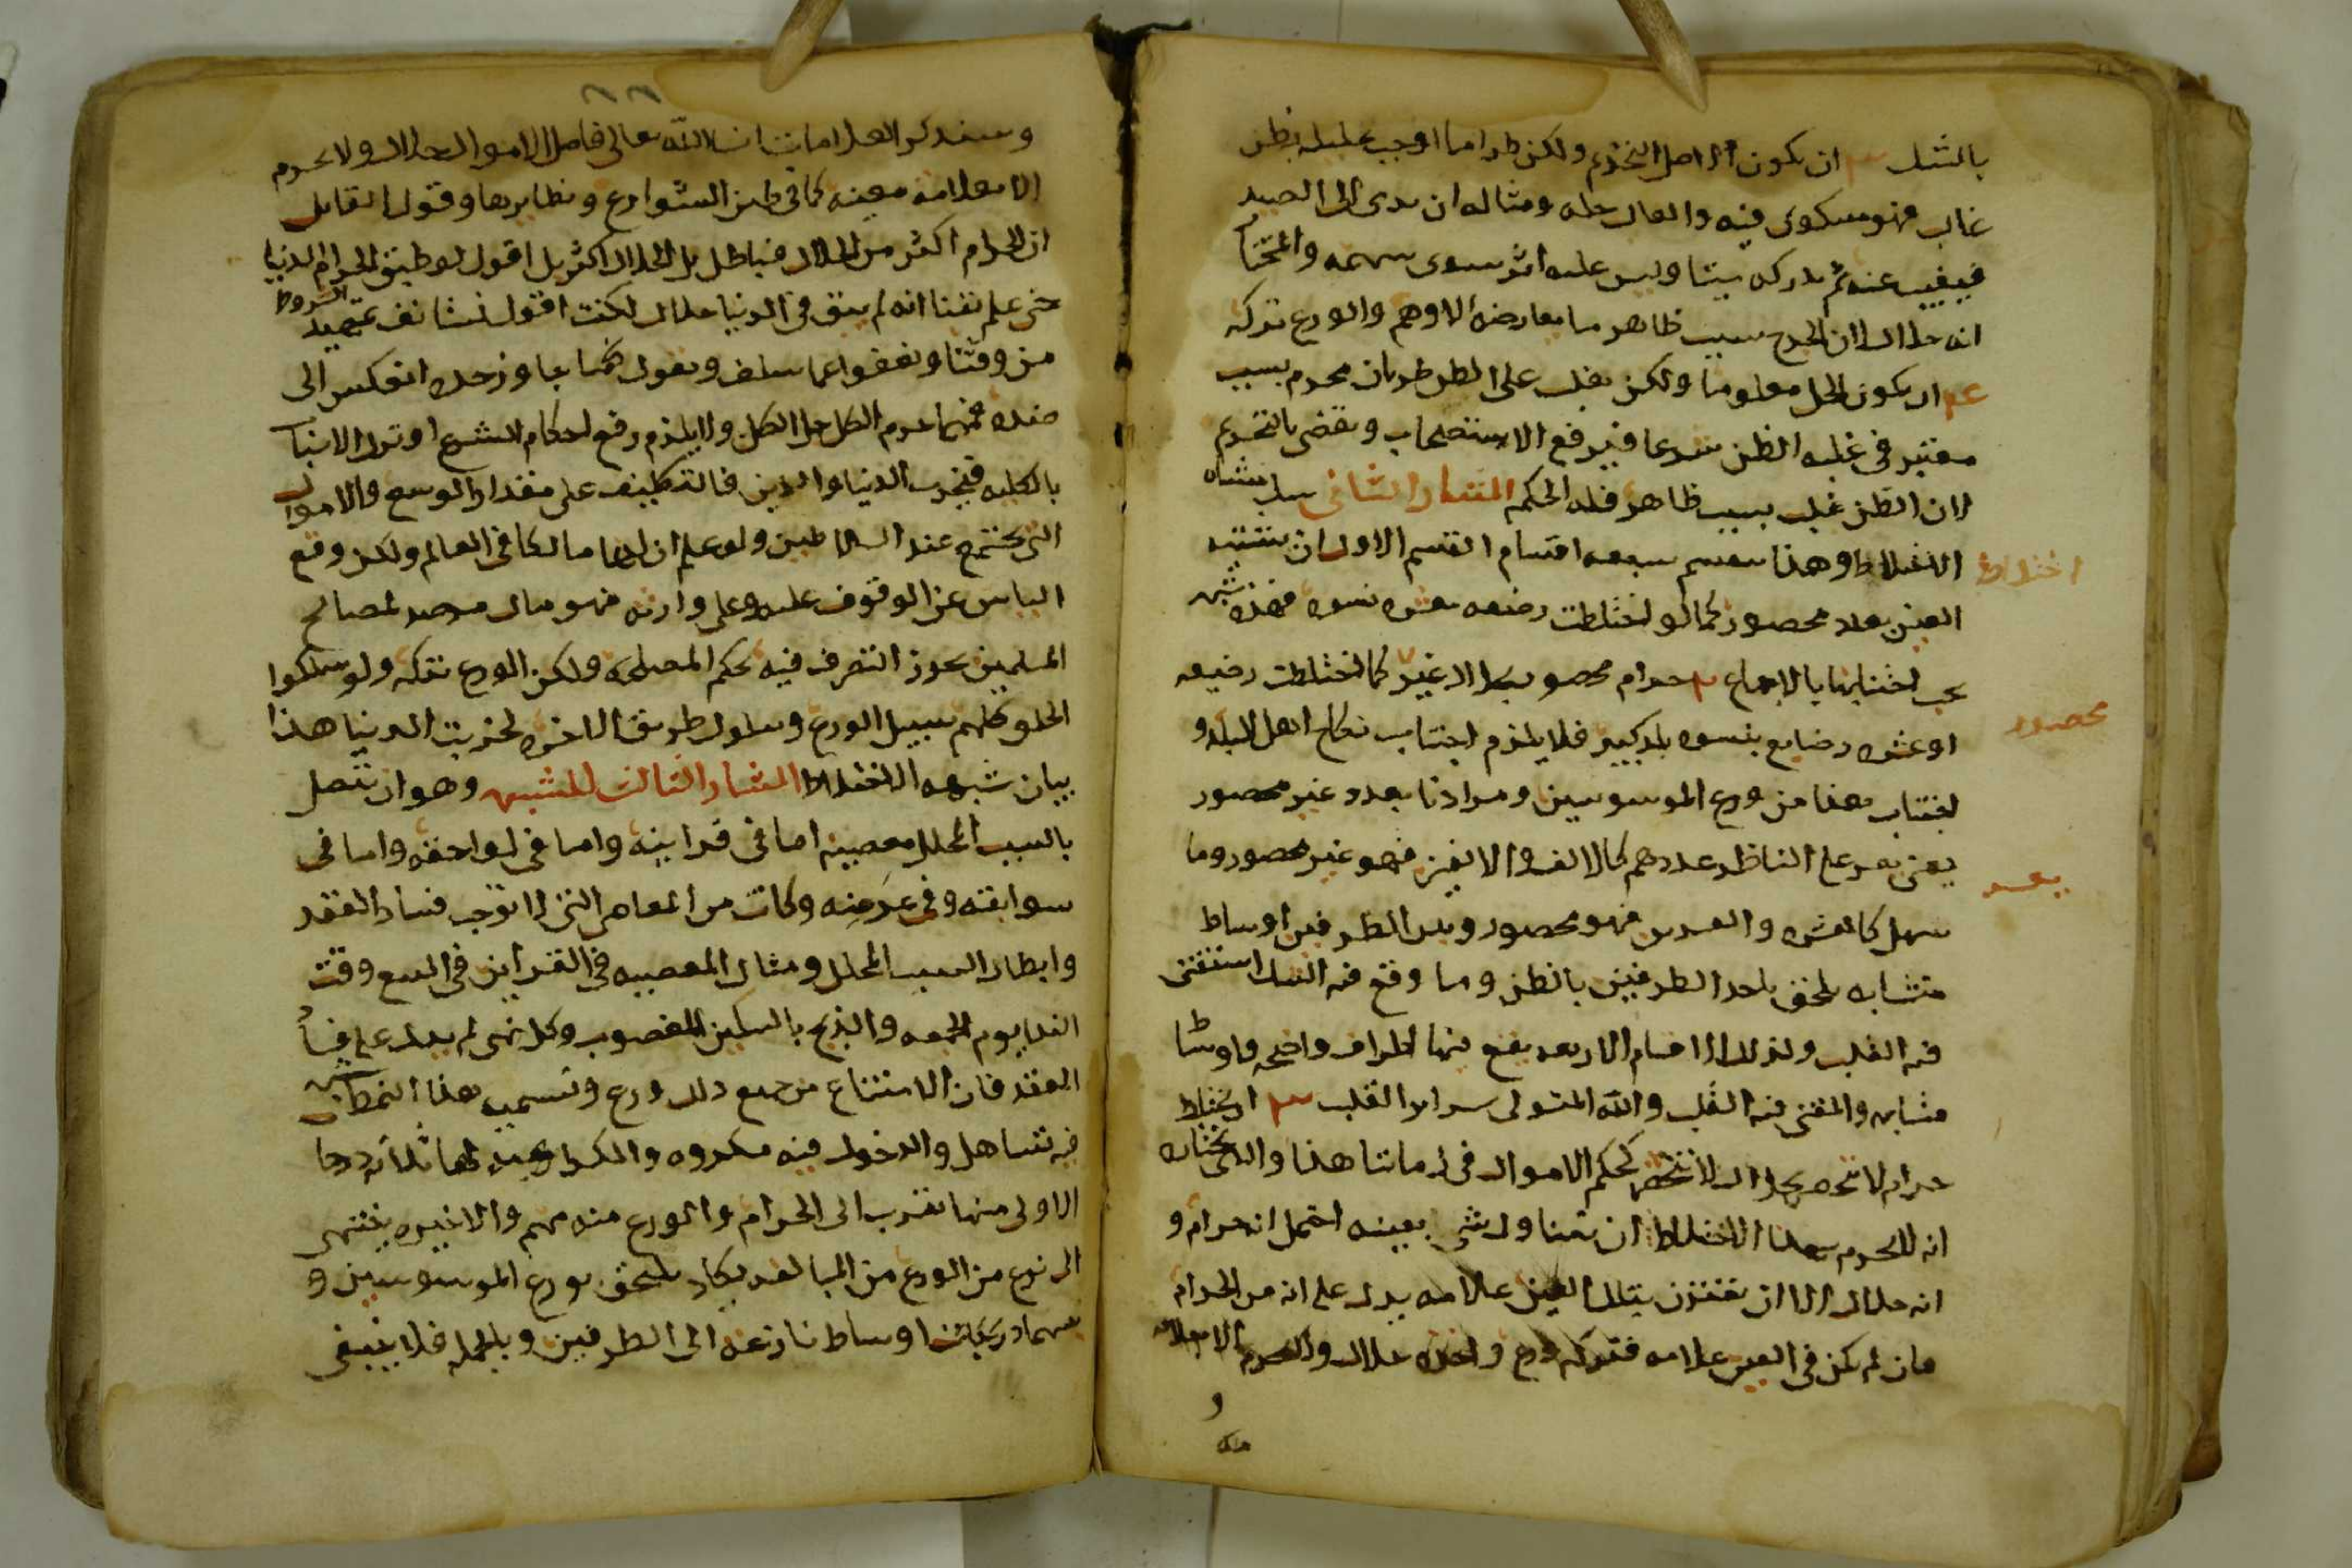 بالشك ٣ ان يكون الاصل التحريم ولكن طرا ما اوجب تحليله بظن
غالب فهو مشكوك فيه والغالب حله ومثاله ان يرمى الى الصيد
فيغيب عنه ثم يدركه ميتا وليس عليه اثر سوى سهمه والمختار
انه حلال لان الجرح سبب ظاهر ما يعارضه الا وهم والورع تركه
٤ ان يكون الحل معلوما ولكن يغلب على الظن طريان محرم بسبب
معتبر في غلبه الظن شرعا فيرفع الاستصحاب ويقضى بالتحريم
لان الظن غلب بسبب ظاهر فله الحكم المثار الثاني منشاه
الاختلاط وهذا ينقسم سبعه اقسام القسم الاول ان تشتبه
العين بعدد محصور كما لو اختلطت رضيعه بعشره نسوه فهذه شبهه
يجب اجتنابها بالاجماع ٢ حرام محصور بحلال غير كما اختلطت رضيعه
او عشره رضايع بنسوه بلد كبير فلا يلزم اجتناب نكاح اهل البلد و
اجتناب هذا من ورع الموسوسين ومرادنا بعدد غير محصور
يعنى يعسر على الناظر عددهم كالالف والالفين فهو غير محصور وما
سهل كالعشره والعشرين فهو محصور وبين الطرفين اوساط
متشابه يلحق باحد الطرفين بالظن وما وقع فيه الشك استفتى
فيه القلب وكذلك الاقسام الاربعه يقع فيها اطراف واضحه واوساط
متشابه والمفتى فيه القلب والله المتولى سراير القلب ٣ ان يختلط
حرام لا ينحصر بحلال لا ينحصر كحكم الاموال في زماننا هذا والذي نختاره
انه لا يحرم بهذا الاختلاط ان يتناول شي بعينه احتمل انه حرام و
انه حلال الا ان يقترن بتلك العين علامه يدل على انه من الحرام
فان لم يكن في العين علامه فتركه ورع واخذه حلال ولا يحرم الا بعلامه
و
اختلاط
محصور
يعسر
٦٦
وسنذكر العلامات ان شاء الله تعالى فاصل الاموال الحلال ولا يحرم
الا بعلامه معينه كما في طين الشوارع ونظايرها وقول القايل
ان الحرام اكثر من الحلال فباطل بل الحلال اكثر بل اقول لو طبق الحرام الدنيا
حتى علم يقينا انه لم يبق في الدنيا حلال لكنت اقول نستانف تمهيد الشروط
من وقتنا ونعفوا عما سلف ونقول كلما جاوز حده انعكس الى
ضده فمهما حرم الكل حل الكل والا يلزم رفع احكام الشرع او ترك الانبا
بالكليه فتخرب الدنيا والدين فالتكليف على مقدار الوسع والاموال
التى تجتمع عند السلاطين ولو علم ان لها مالكا في العالم ولكن وقع
الياس عن الوقوف عليه وعلى وارثه فهو مال مرصد لمصالح
المسلمين يجوز التصرف فيه بحكم المصلحه ولكن الورع تركه ولو سلكوا
الخلق كلهم سبيل الورع وسلوك طريق الاخره لخربت الدنيا هذا
بيان شبهه الاختلاط المثار الثالث للشبهه وهو ان تتصل
بالسبب المحلل معصيه اما في قراينه واما في لواحقه واما في
سوابقه وفي عوضه وكانت من المعاصى التى لا توجب فساد العقد
وابطال السبب المحلل ومثال المعصيه في القراين في البيع وقت
الندا يوم الجمعه والذبح بالسكين المغصوب وكل نهى لم يدل على فساد
العقد فان الامتناع من جميع ذلك ورع وتسميه هذا النمط شبهه
فيه تساهل والدخول فيه مكروه والكراهيه لها ثلاثه درجات
الاولى منها تقرب الى الحرام والورع منه مهم والاخيره ينتهى
الى نوع من الورع من المبالغه يكاد يلتحق بورع الموسوسين و
بينهما درجات اوساط نازعه الى الطرفين وبالجمله فلا ينبغى